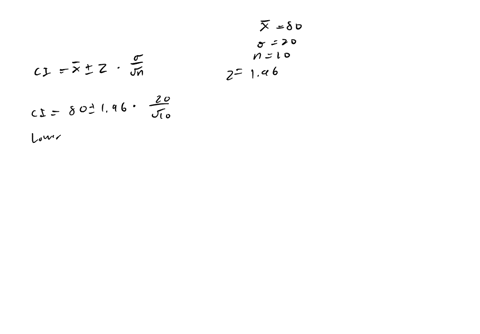 x̄ = 80
σ = 20
n = 10
z = 1.96
CI = x̄ ± z · σ/√n
CI = 80 ± 1.96 · 20/√10
Lower